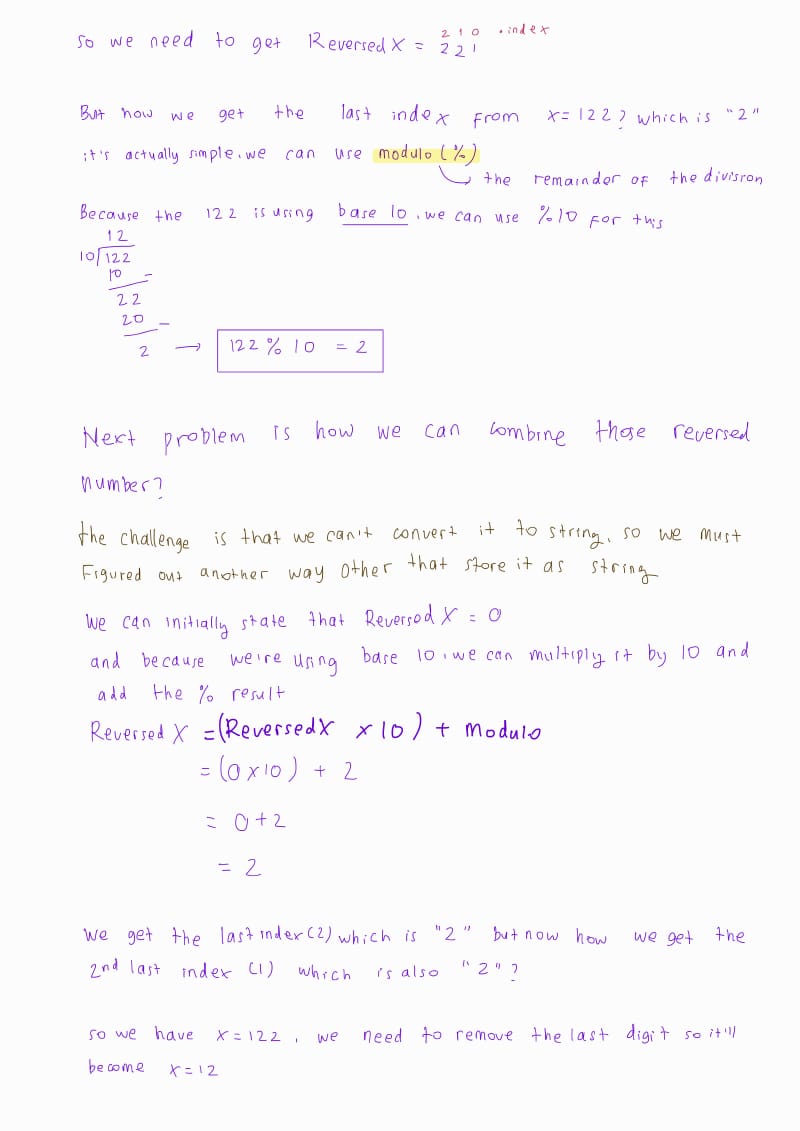 2 1 0 • index
so we need to get ReversedX = 2 2 1
But how we get the last index from x = 122? which is "2"
it's actually simple, we can use modulo (%)
the remainder of the division
Because the 122 is using base 10, we can use %10 for this
12
10 122
10 -
22
20 -
2 → 122 % 10 = 2
Next problem is how we can combine those reversed
number?
the challenge is that we can't convert it to string, so we must
Figured out another way other that store it as string
We can initially state that ReversedX = 0
and because we're using base 10, we can multiply it by 10 and
add the % result
ReversedX = (ReversedX x 10) + modulo
= (0 x 10) + 2
= 0 + 2
= 2
We get the last index (2) which is "2" but now how we get the
2nd last index (1) which is also "2"?
so we have x = 122, we need to remove the last digit so it'll
become x = 12